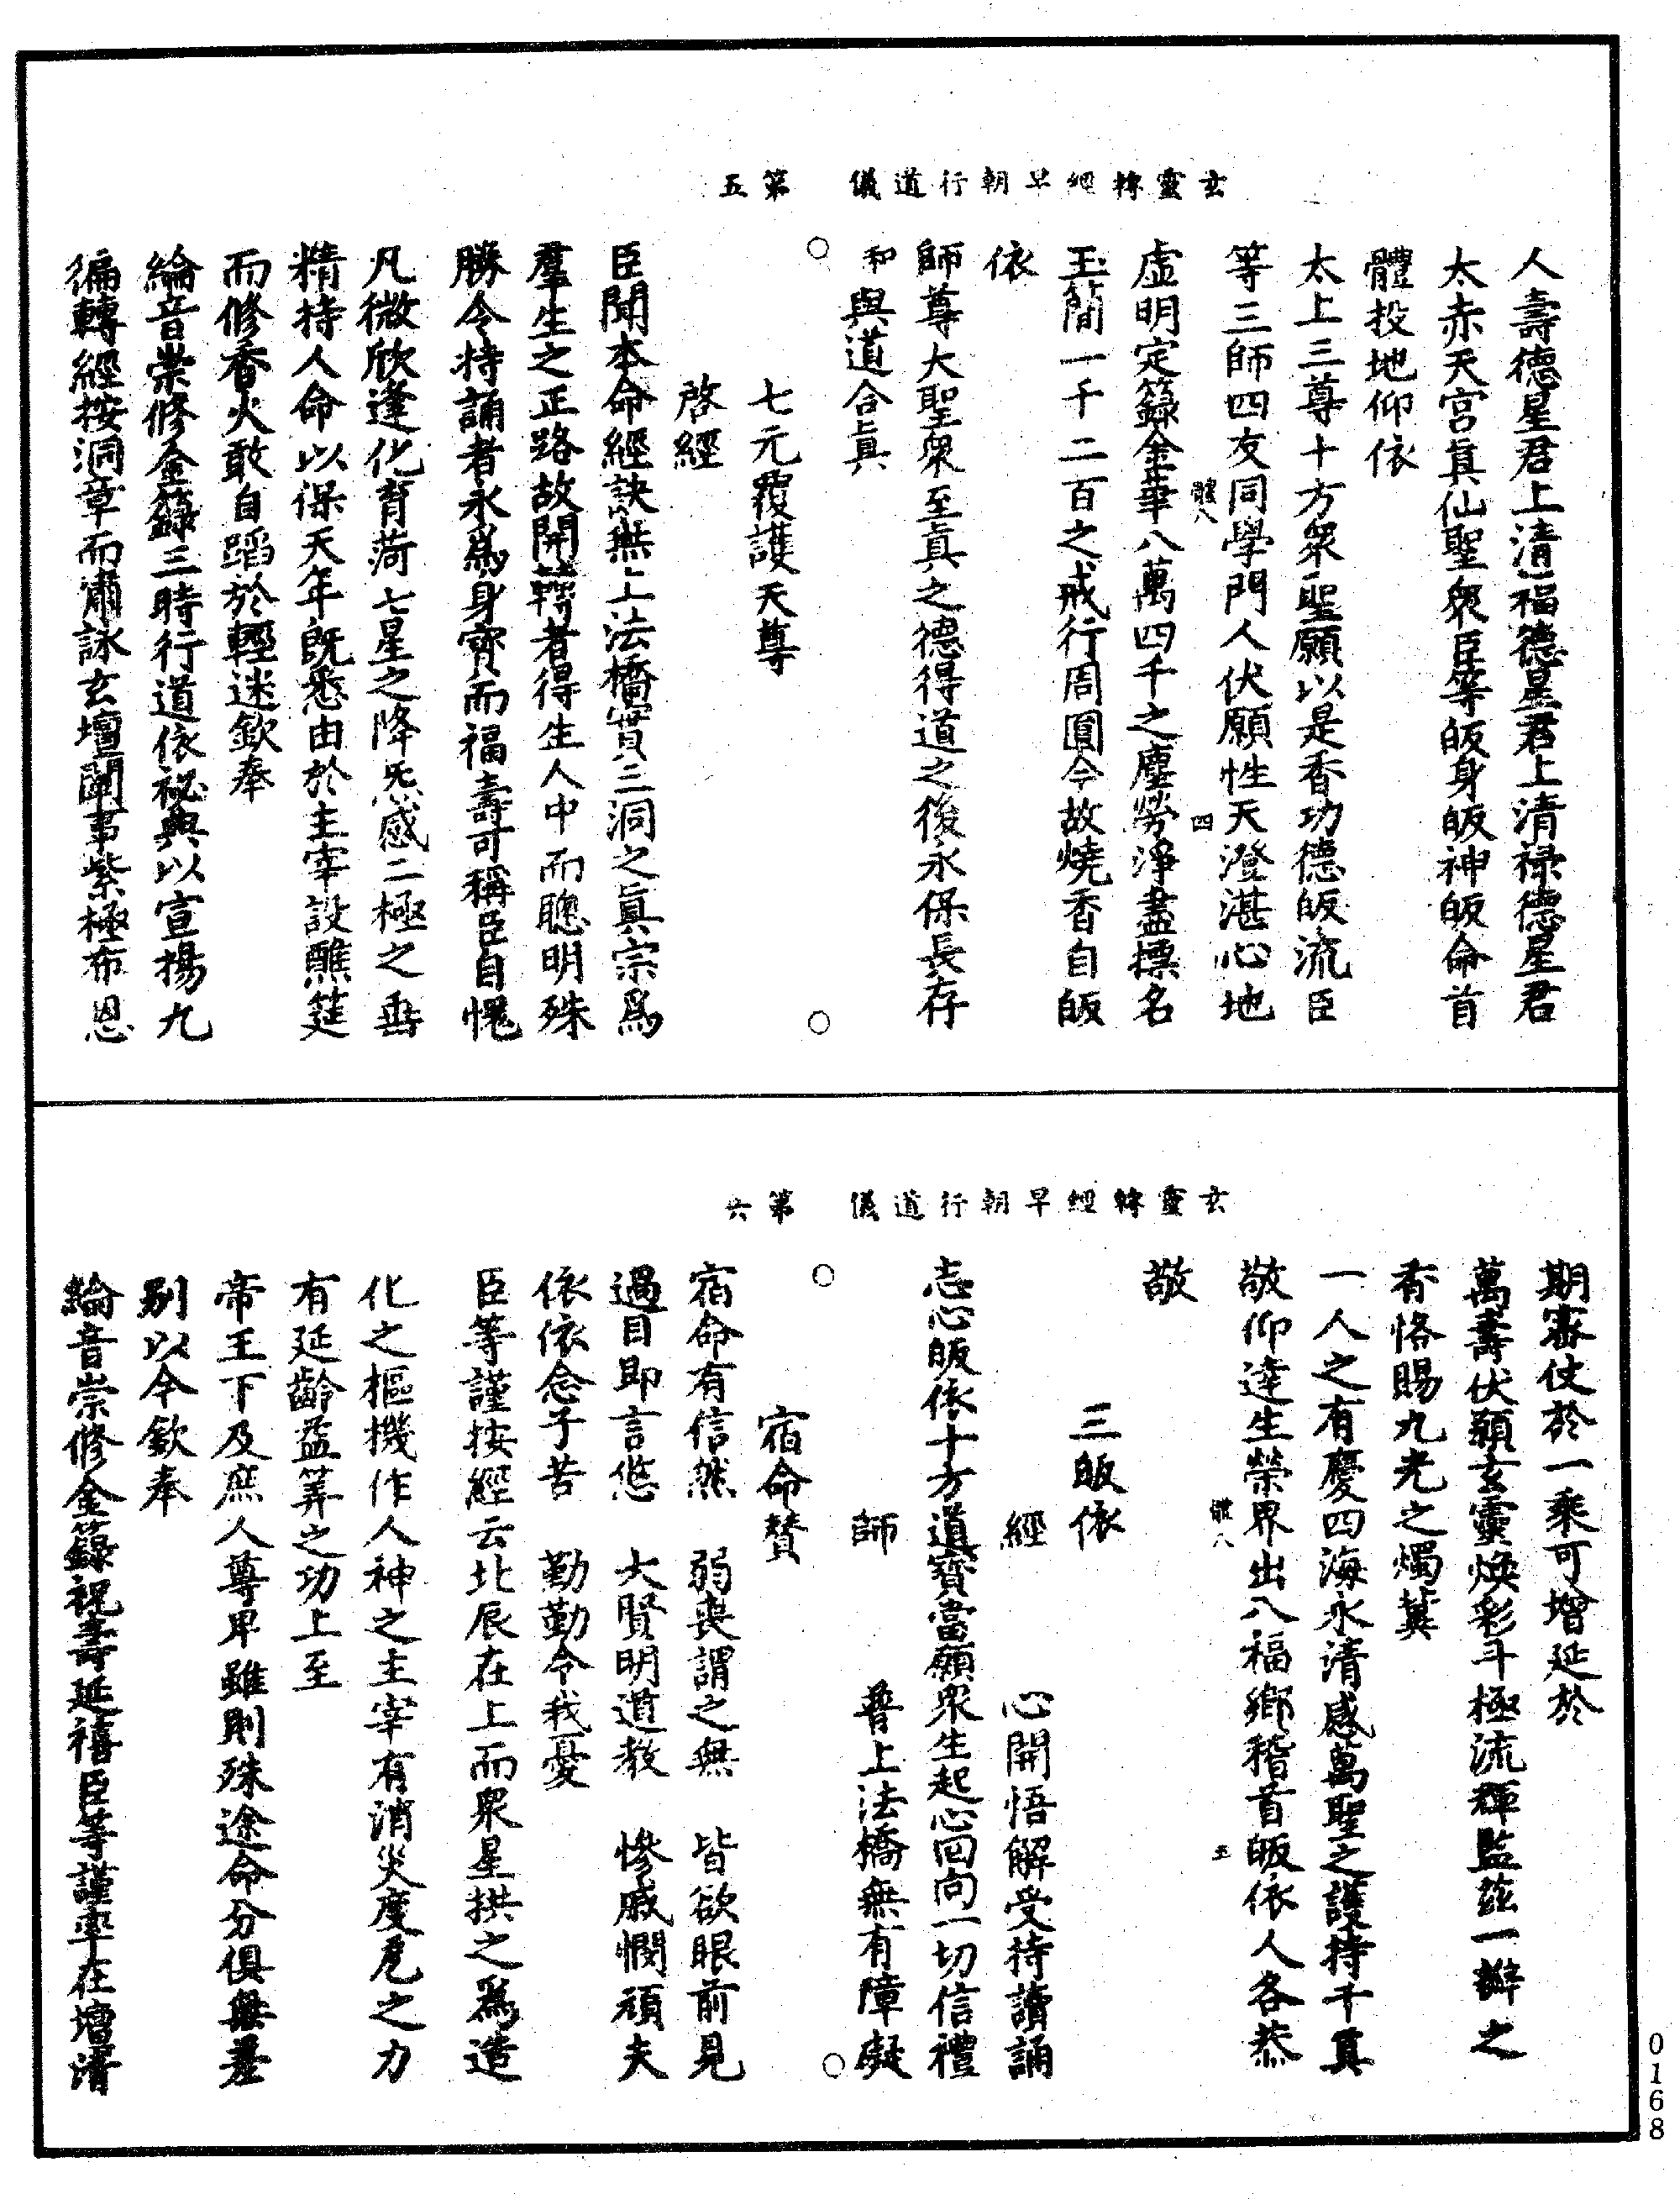 玄靈轉經早朝行道儀　第五
人壽德星君上清福德星君上清祿德星君
太赤天宮眞仙聖衆臣等皈身皈神皈命首
體投地仰依
太上三尊十方衆聖願以是香功德皈流臣
等三師四友同學門人伏願性天澄湛心地
體八　四
虛明定籙金華八萬四千之塵勞淨盡摽名
玉簡一千二百之戒行周圓今故燒香自皈
依
師尊大聖衆至眞之德得道之後永保長存
和與道合眞
○　○
七元覆護天尊
啓經
臣聞本命經訣無上法橋實三洞之眞宗爲
羣生之正路故開轉者得生人中而聰明殊
勝令持誦者永爲身寶而福壽可稱臣自愧
凡微欣逢化育荷七星之降炁感二極之垂
精持人命以保天年旣悉由於主宰設醮筵
而修香火敢自蹈於輕迷欽奉
綸音崇修金籙三時行道依祕典以宣揚九
徧轉經按洞章而肅詠玄壇闡事紫極布恩
玄靈轉經早朝行道儀　第六
期審使於一乘可增延於
萬壽伏願玄靈煥彩斗極流輝監茲一瓣之
香恪賜九光之燭冀
一人之有慶四海永清感萬聖之護持千眞
敬仰逹生榮界出八福鄉稽首皈依人各恭
體八　五
敬
三皈依
經　心開悟解受持讀誦
志心皈依十方道寶當願衆生起心回向一切信禮
師　普上法橋無有障礙
○　○
宿命贊
宿命有信然　弱喪謂之無　皆欲眼前見
過目卽言悠　大賢明道教　慘戚憫頑夫
依依念子苦　勤勤令我憂
臣等謹按經云北辰在上而衆星拱之爲造
化之樞機作人神之主宰有消災度厄之力
有延齡益筭之功上至
帝王下及庶人尊卑雖則殊途命分俱無差
別以今欽奉
綸音崇修金籙祝壽延禧臣等謹率在壇淸
0168